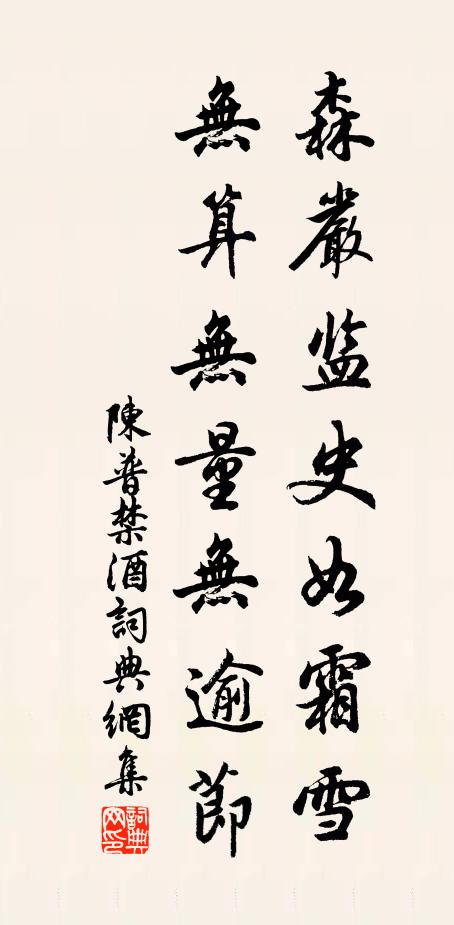 森嚴监史如霜雪
無算無量無逾節
陳普禁酒詞典網集
詞典网印